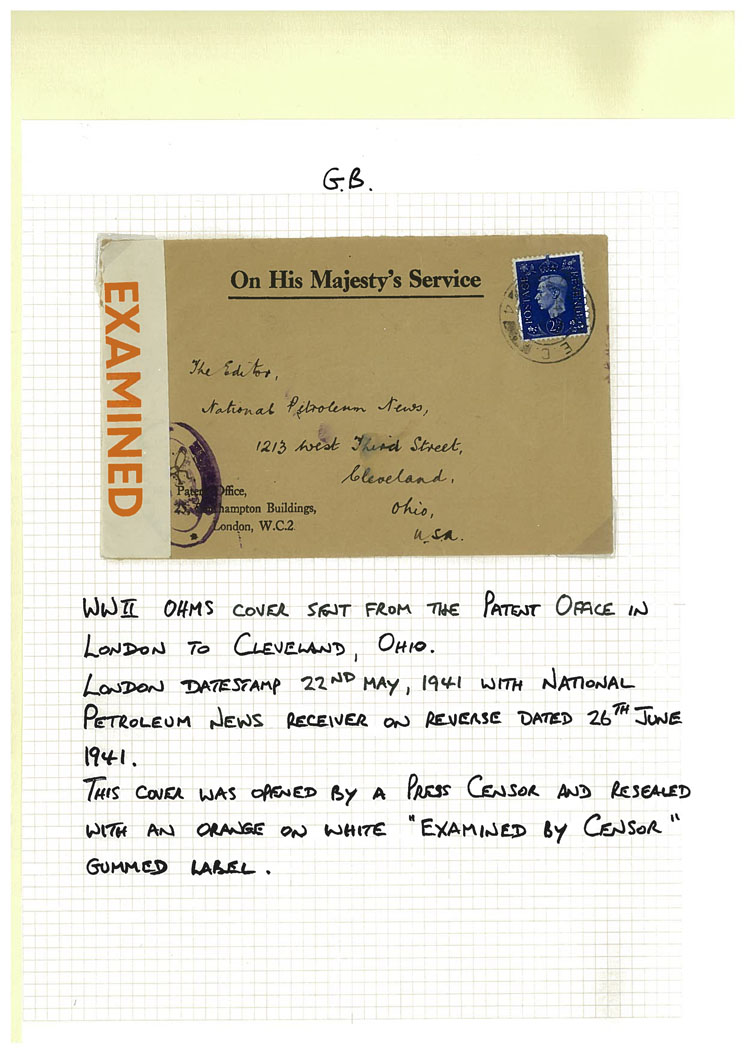 G.B.
On His Majesty's Service
POSTAGE
2½
E.C.
EXAMINED
The Editor,
National Petroleum News,
1213 West Third Street,
Cleveland,
Ohio,
U.S.A.
Patent Office,
25, Southampton Buildings,
London, W.C.2
WWII OHMS COVER SENT FROM THE PATENT OFFICE IN
LONDON TO CLEVELAND, OHIO.
LONDON DATESTAMP 22ND MAY, 1941 WITH NATIONAL
PETROLEUM NEWS RECEIVER ON REVERSE DATED 26TH JUNE
1941.
THIS COVER WAS OPENED BY A PRESS CENSOR AND RESEALED
WITH AN ORANGE ON WHITE "EXAMINED BY CENSOR"
GUMMED LABEL.